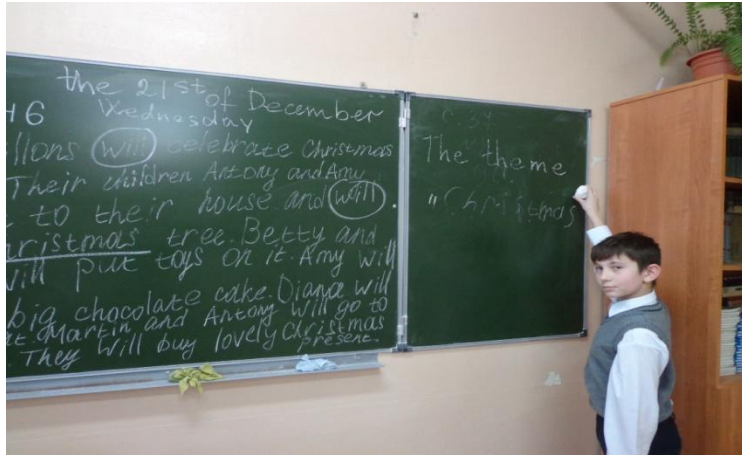 the 21st of December
Wednesday
will celebrate Christmas
Their children Antony and Amy
to their house and will
tree. Betty and
will put toys on it. Amy will
big chocolate cake. Diana will
Martin and Antony will go to
They will buy lovely Christmas
present.
The theme
"Christmas